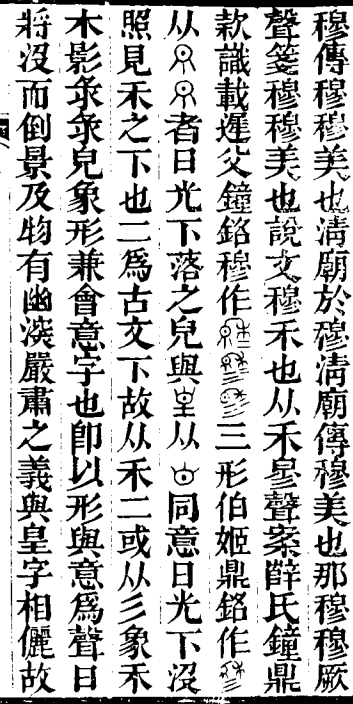 穆傳穆穆美也淸廟於穆淸廟傳穆美也那穆穆厥
聲箋穆穆美也說文穆禾也从禾㣎聲案薛氏鐘鼎
款識載遲父鐘銘穆作三形伯姬鼎銘作
从者日光下落之皃與从同意日光下沒
照見禾之下也二爲古文下故从禾二或从彡象禾
木影氽氽皃象形兼會意字也卽以形與意爲聲日
將沒而倒景及物有幽深嚴肅之義與皇字相儷故